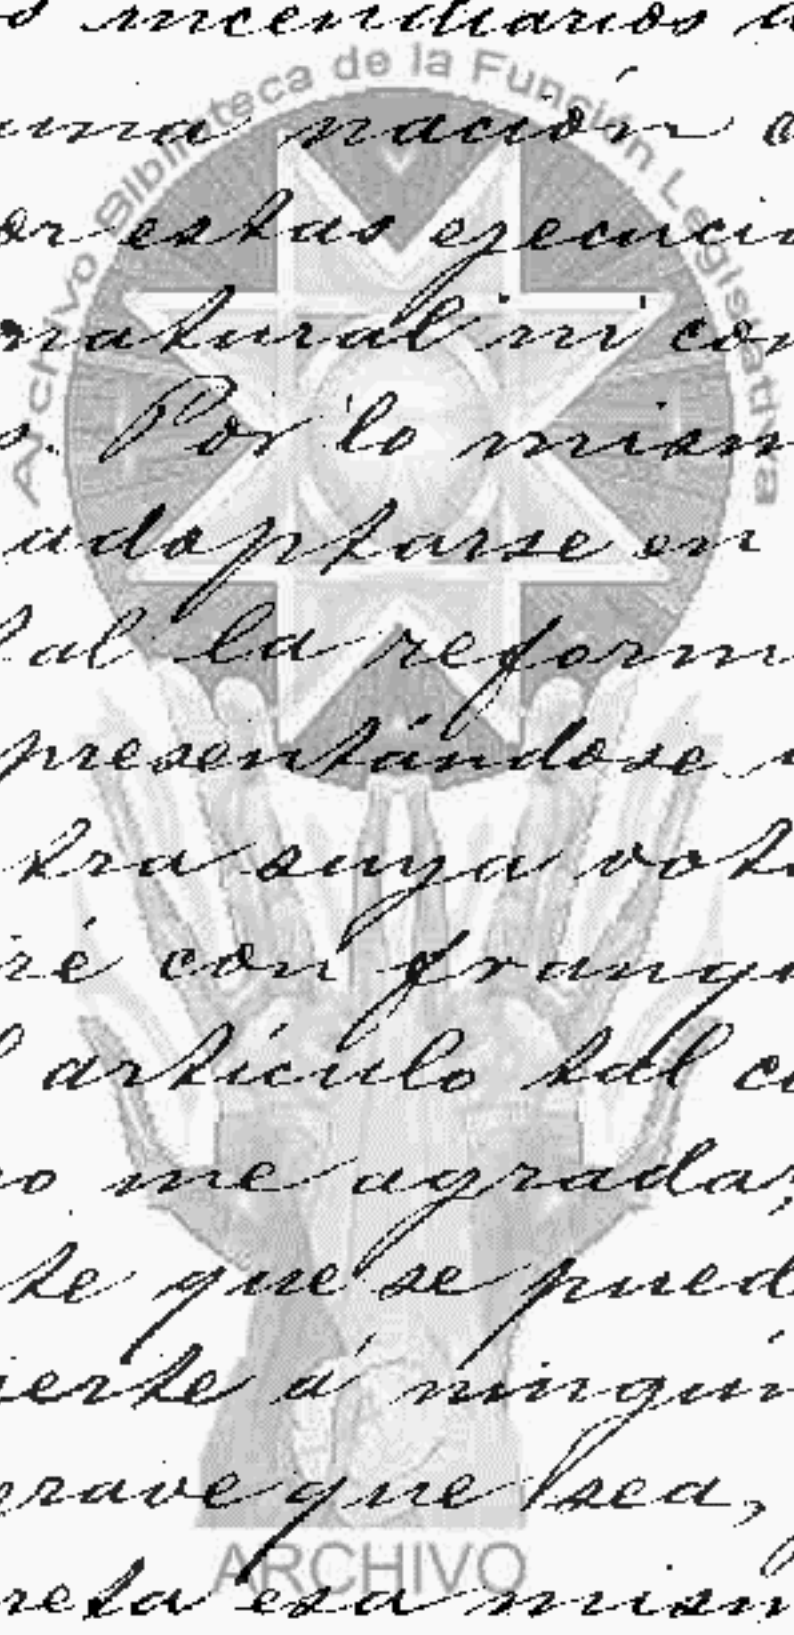 s incendiarios a
Archivo Biblioteca de la Función Legislativa
una nación
or estas ejecucio
natural ni con
s. Por lo mism
adoptarse en
tal la reform
presentándose
tra suya vot
ré con franqu
l artículo tal co
o me agrada,
te que se pued
ierte á ningún
grave que sea,
ARCHIVO
reta esa mism